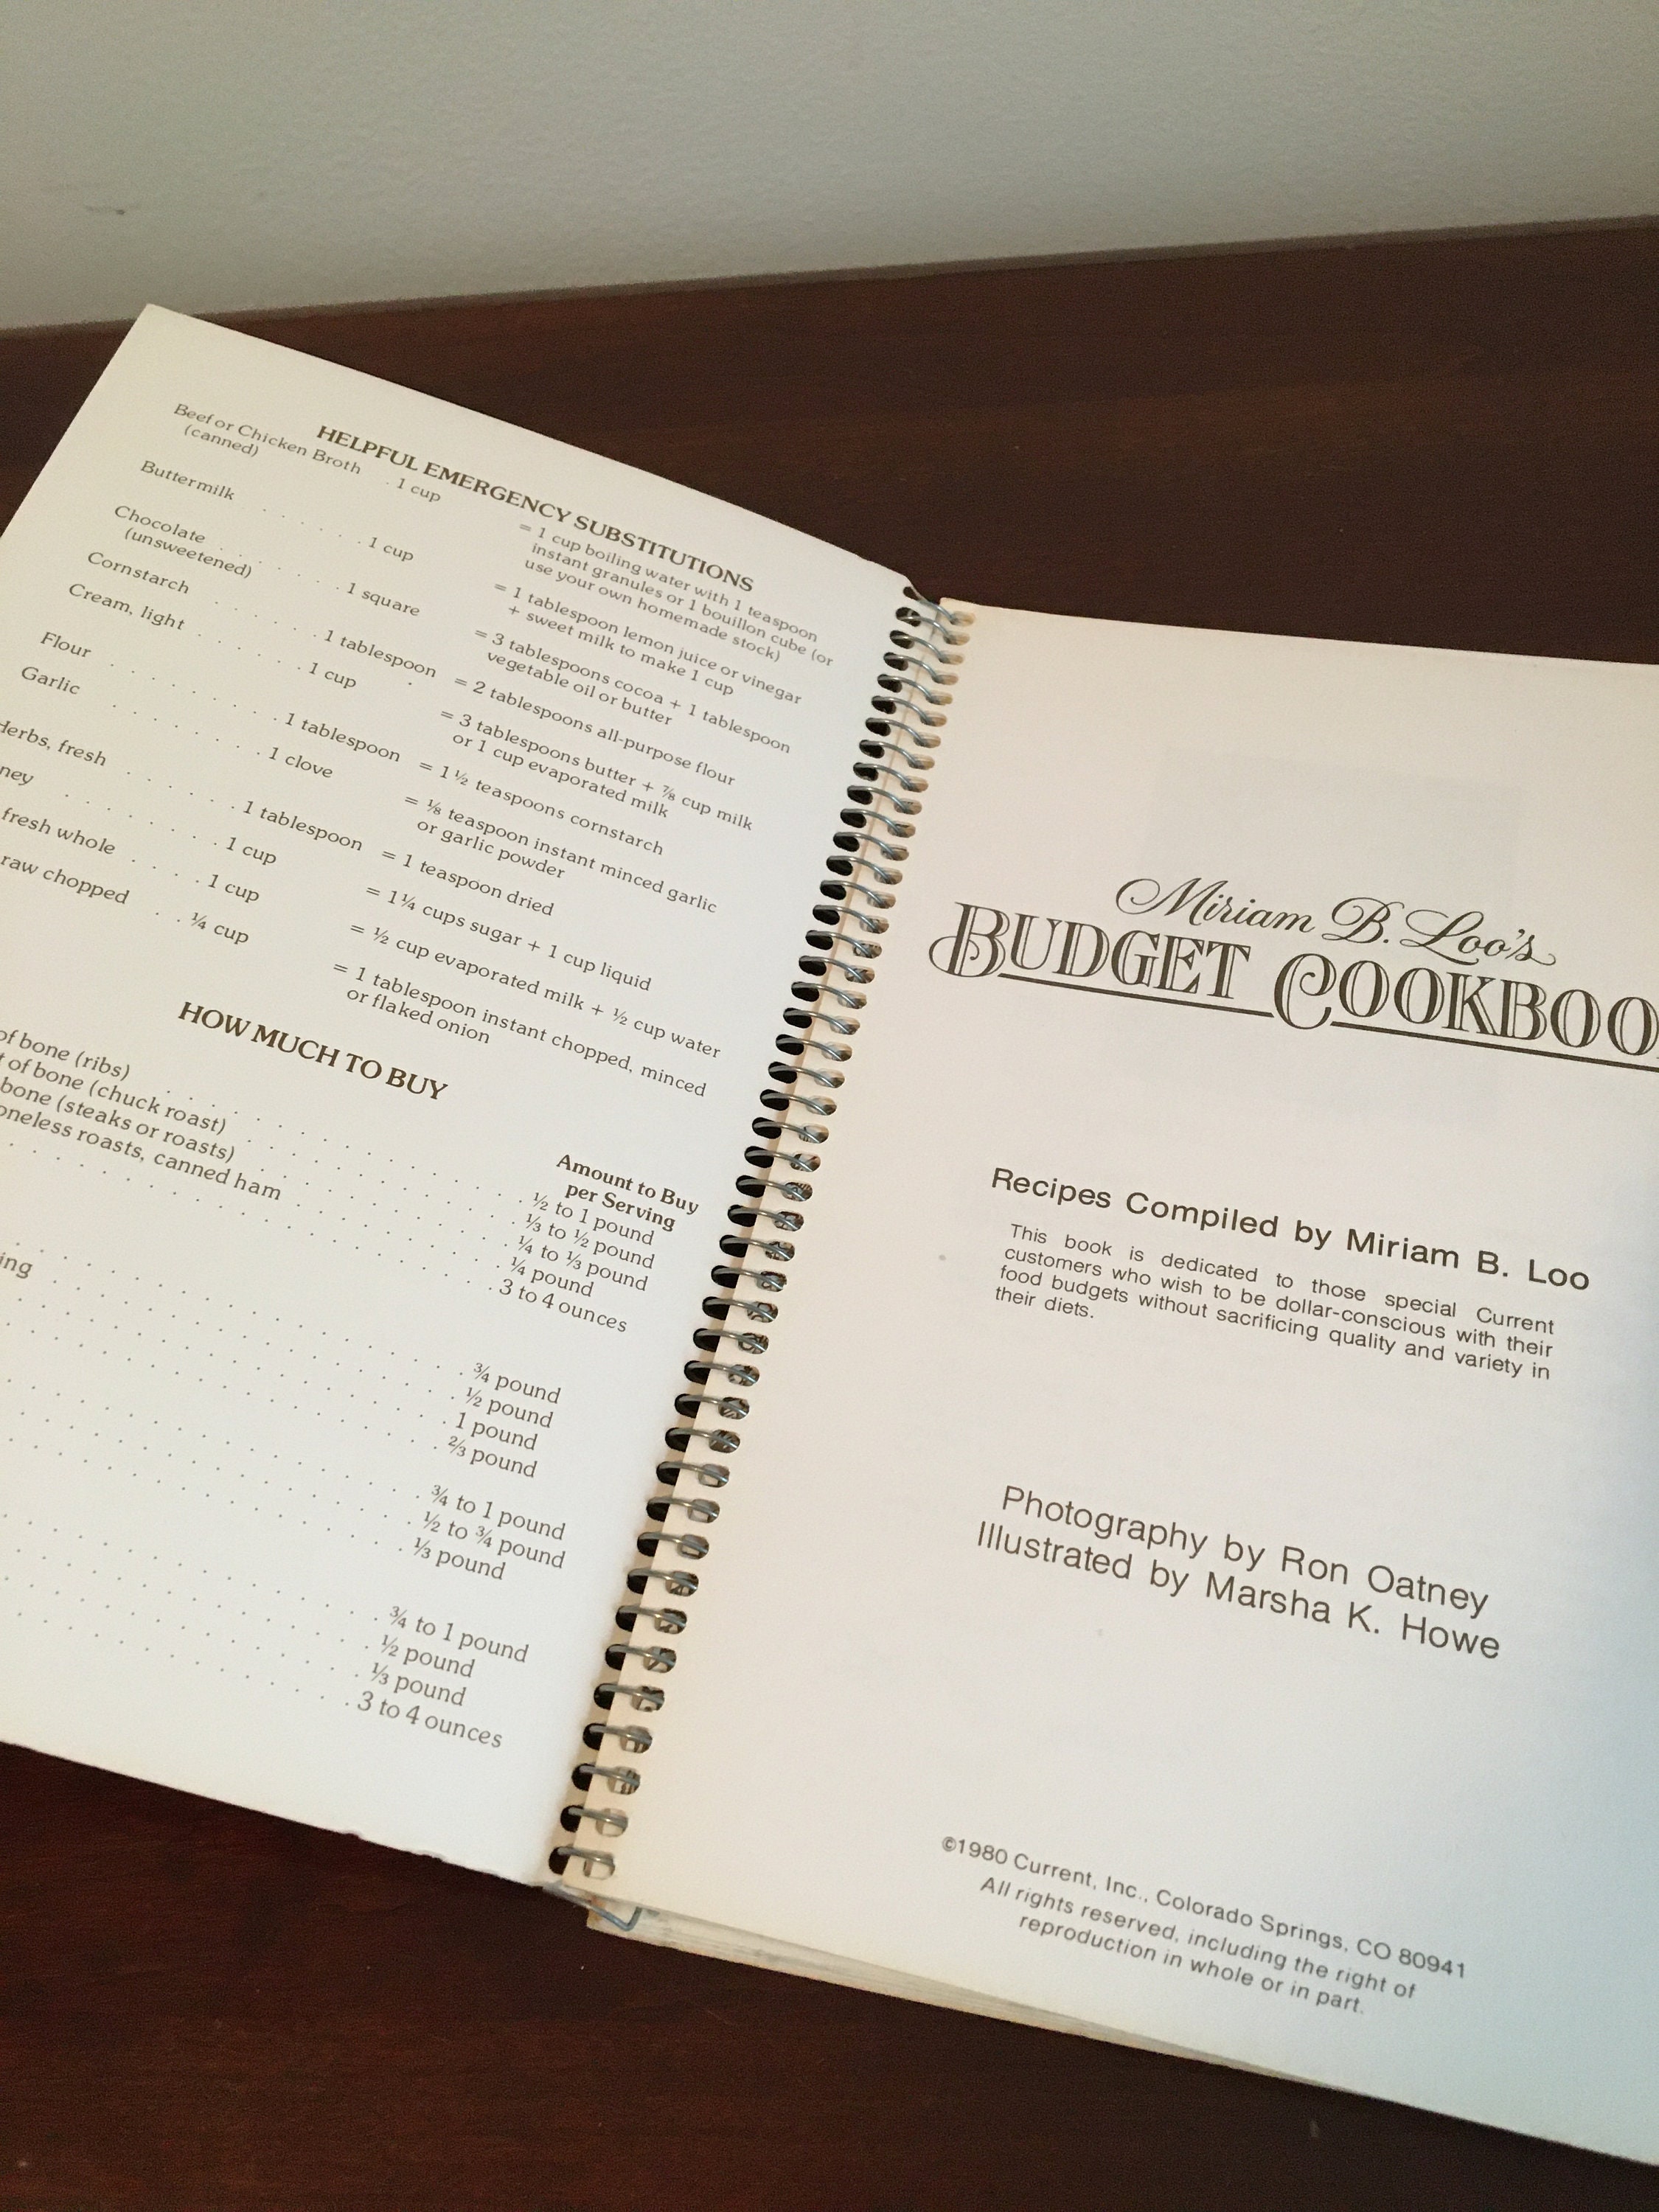 HELPFUL EMERGENCY SUBSTITUTIONS
Beef or Chicken Broth . 1 cup = 1 cup boiling water with 1 teaspoon
(canned) instant granules or 1 bouillon cube (or
use your own homemade stock)
Buttermilk . . . . . . 1 cup = 1 tablespoon lemon juice or vinegar
+ sweet milk to make 1 cup
Chocolate . . . . . . 1 square = 3 tablespoons cocoa + 1 tablespoon
(unsweetened) vegetable oil or butter
Cornstarch . . . . . . 1 tablespoon = 2 tablespoons all-purpose flour
Cream, light . . . . . . 1 cup = 3 tablespoons butter + ⅞ cup milk
or 1 cup evaporated milk
Flour . . . . . . . . 1 tablespoon = 1½ teaspoons cornstarch
Garlic . . . . . . . . 1 clove = ⅛ teaspoon instant minced garlic
or garlic powder
Herbs, fresh . . . . . . 1 tablespoon = 1 teaspoon dried
ney . . . . . . . . 1 cup = 1¼ cups sugar + 1 cup liquid
fresh whole . . . . . 1 cup = ½ cup evaporated milk + ½ cup water
raw chopped . . ¼ cup = 1 tablespoon instant chopped, minced
or flaked onion
HOW MUCH TO BUY
Amount to Buy
per Serving
of bone (ribs) . . . . . . ½ to 1 pound
t of bone (chuck roast) . . . . . . ⅓ to ½ pound
bone (steaks or roasts) . . . . . . ¼ to ⅓ pound
oneless roasts, canned ham . . . . . . ¼ pound
. . . . . . 3 to 4 ounces
. . . . . . ¾ pound
ing . . . . . . ½ pound
. . . . . . 1 pound
. . . . . . ⅔ pound
. . . . . . ¾ to 1 pound
. . . . . . ½ to ¾ pound
. . . . . . ⅓ pound
. . . . . . ¾ to 1 pound
. . . . . . ½ pound
. . . . . . ⅓ pound
. . . . . . 3 to 4 ounces
Miriam B. Loo's
BUDGET COOKBOO
Recipes Compiled by Miriam B. Loo
This book is dedicated to those special Current
customers who wish to be dollar-conscious with their
food budgets without sacrificing quality and variety in
their diets.
Photography by Ron Oatney
Illustrated by Marsha K. Howe
©1980 Current, Inc., Colorado Springs, CO 80941
All rights reserved, including the right of
reproduction in whole or in part.